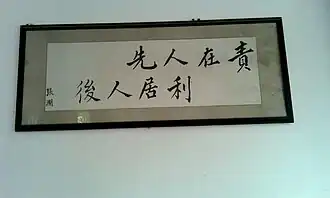 責在人先
利居人後
張瀾